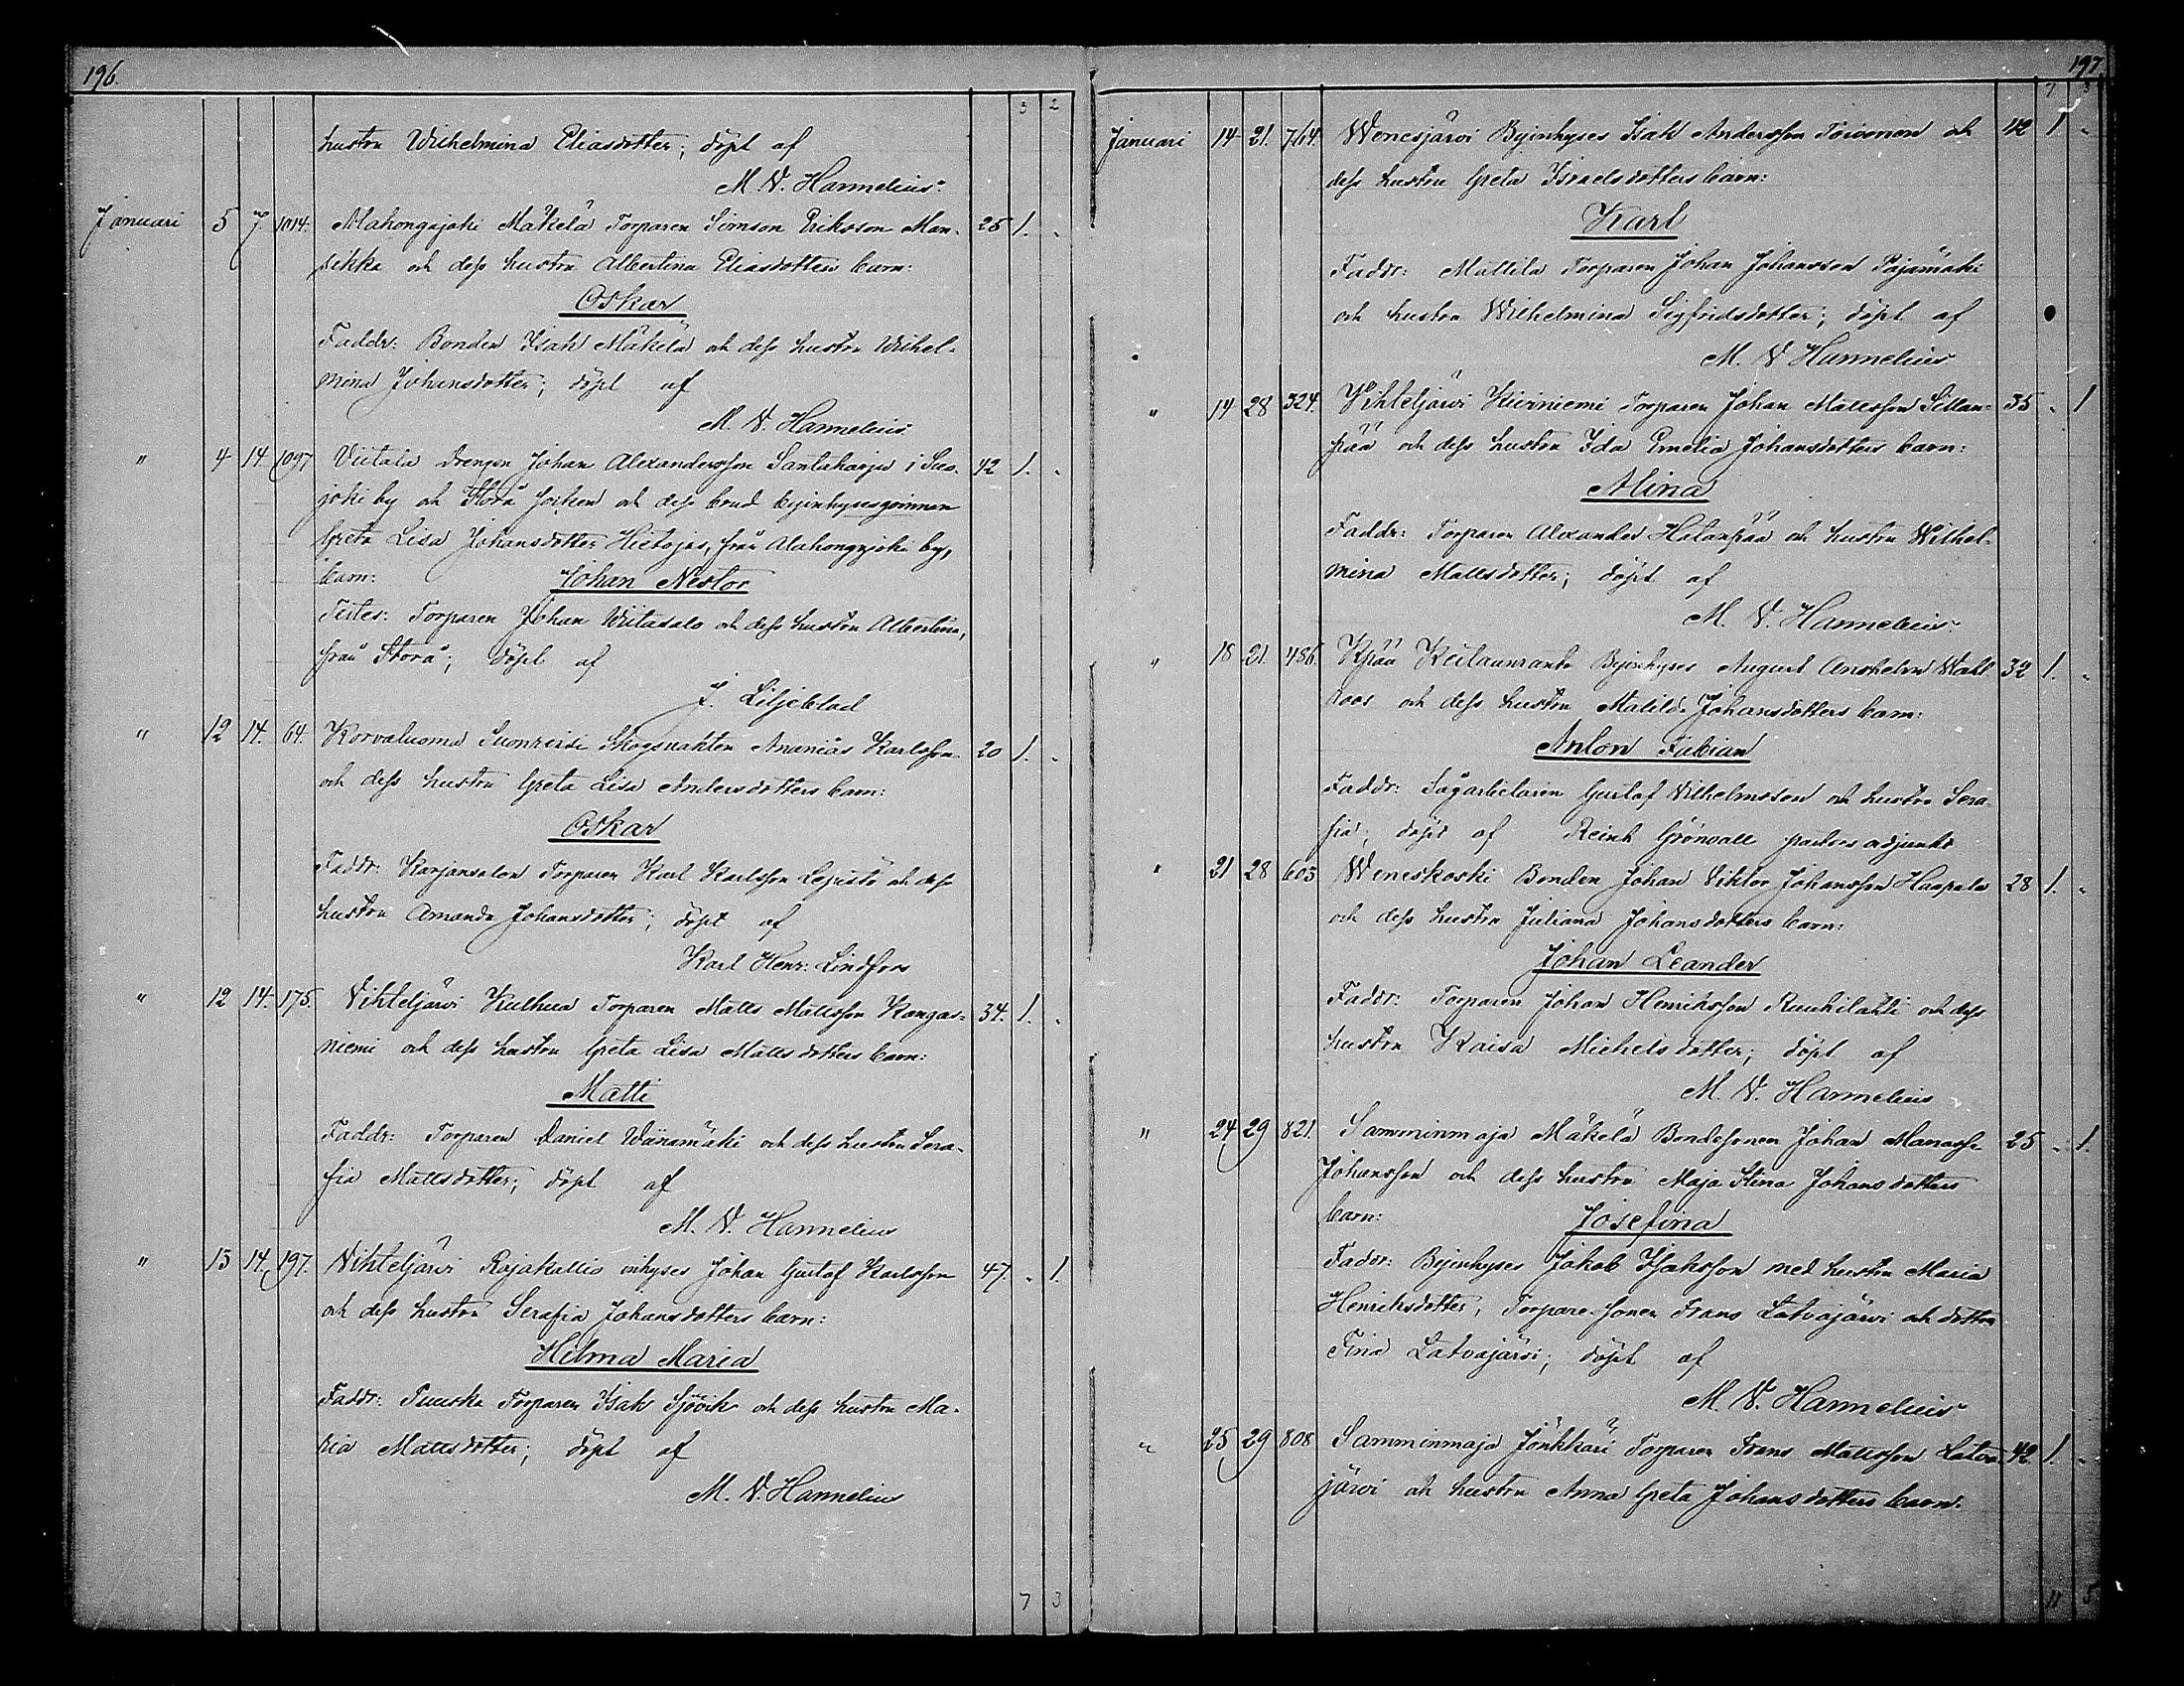 196.
3 2
hustru Wilhelmina Eliasdotter; döpt af
M. V. Hannelius.
Januari 5 7 1014. Alahongajoki Mäkelä Torparen Simson Eriksson Man- 25 1. "
sikka och dess hustru Albertina Eliasdotters barn:
Oskar
Faddr: Bonden Isak Mäkelä och dess hustru Wilhel-
mina Johansdotter; döpt af
M. V. Hannelius.
" 4 14 1097 Viitala drengen Johan Alexandersson Santaharju i Suo- 42 1. "
joki by och Storå socken och dess brud byinhysesqvinnan
Greta Lisa Johansdotter Hietojas, från Alahongajoki by,
barn: Johan Nestor
Testes: Torparen Johan Wiitasalo och dess hustru Albertina,
från Storå; döpt af
J. Liljeblad
" 12 14. 64. Korvaluoma Skogsvakten Ananias Karlsson 20 1. "
och dess hustru Greta Lisa Andersdotters barn:
Oskar
Faddr: Karjansalon Torparen Karl Karlsson Lepistö och dess
hustru Amanda Johansdotter; döpt af
Karl Henr: Lindfors
" 12 14. 175. Vihteljärvi Kulhua Torparen Matts Mattsson Kangas- 34. 1. "
niemi och dess hustru Greta Lisa Mattsdotters barn:
Matti
Faddr: Torparen Daniel Wäinämäki och dess hustru Sera-
fia Mattsdotter; döpt af
M. V. Hannelius
" 13 14. 197. Vihteljärvi Rajakallio inhyses Johan Gustaf Karlsson 47. " 1.
och dess hustru Serafia Johansdotters barn:
Hilma Maria
Faddr: Torparen Isak Sjövik och dess hustru Ma-
ria Mattsdotter; döpt af
M. V. Hannelius
7 3
197
7 3
Januari 14 21. 764. Wenesjärvi Byinhyses Isak Andersson Toivonen och 42 1 "
dess hustru Greta Israelsdotters barn:
Karl
Faddr: Mattila Torparen Johan Johansson Pajamäki
och hustru Wilhelmina Sigfridsdotter; döpt af
M. V. Hannelius
" 14 28 324. Vihteljärvi Kiviniemi Torparen Johan Mattsson Sillan- 35 " 1
pää och dess hustru Ida Emelia Johansdotters barn:
Alina
Faddr: Torparen Alexander Hatanpää och hustru Wilhel-
mina Mattsdotter; döpt af
M. V. Hannelius.
" 18 21. 486. Kpää Keilaunranta Byinhyses August Anshelm Wahl- 32 1. "
roos och dess hustru Matilda Johansdotters barn:
Anton Fabian
Faddr: Sågarbetaren Gustaf Vilhelmsson och hustru Sera-
fia; döpt af Reinh Grönvall pastors adjunkt
" 21 28 603 Weneskoski Bonden Johan Viktor Johansson Haapala 28 1. "
och dess hustru Juliana Johansdotters barn:
Johan Leander
Faddr: Torparen Johan Henriksson Ruuhilahti och dess
hustru Kaisa Michelsdotter; döpt af
M. V. Hannelius
" 24 29 821. Samminmaja Mäkelä Bondesonen Johan Manasse 25 " 1.
Johansson och dess hustru Maja Stina Johansdotters
barn: Josefina
Faddr: Byinhyses Jakob Isaksson med hustru Maria
Henriksdotter, Torpare-sonen Frans Latvajärvi och dottren
Fina Latvajärvi; döpt af
M. V. Hannelius
" 25 29 808 Samminmaja Jönkkäri Torparen Frans Mattsson Latva- 42 1. "
järvi och hustru Anna Greta Johansdotters barn:
11 5